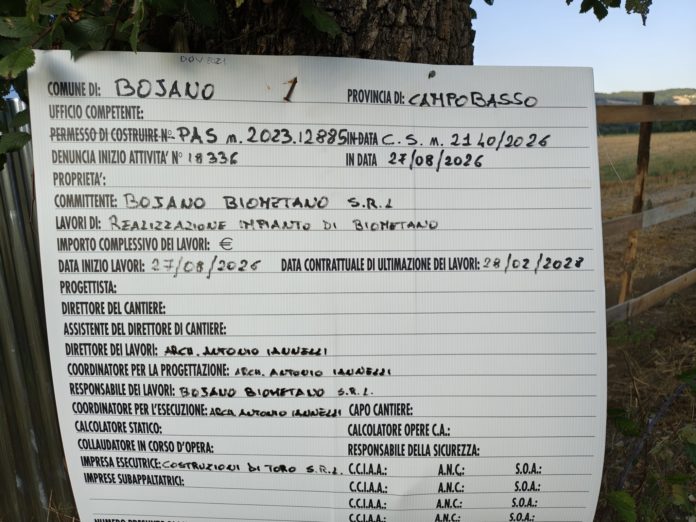 DOV 2021
COMUNE DI: BOJANO 1 PROVINCIA DI: CAMPOBASSO
UFFICIO COMPETENTE:
PERMESSO DI COSTRUIRE N° PAS n. 2023.12885 IN DATA C.S. n. 2140/2026
DENUNCIA INIZIO ATTIVITA' N° 18336 IN DATA 27/08/2026
PROPRIETA':
COMMITTENTE: BOJANO BIOMETANO S.R.L
LAVORI DI: REALIZZAZIONE IMPIANTO DI BIOMETANO
IMPORTO COMPLESSIVO DEI LAVORI: €
DATA INIZIO LAVORI: 27/08/2026 DATA CONTRATTUALE DI ULTIMAZIONE DEI LAVORI: 28/02/2028
PROGETTISTA:
DIRETTORE DEL CANTIERE:
ASSISTENTE DEL DIRETTORE DI CANTIERE:
DIRETTORE DEI LAVORI: ARCH. ANTONIO IANNELLI
COORDINATORE PER LA PROGETTAZIONE: ARCH. ANTONIO IANNELLI
RESPONSABILE DEI LAVORI: BOJANO BIOMETANO S.R.L.
COORDINATORE PER L'ESECUZIONE: ARCH. ANTONIO IANNELLI CAPO CANTIERE:
CALCOLATORE STATICO: CALCOLATORE OPERE C.A.:
COLLAUDATORE IN CORSO D'OPERA: RESPONSABILE DELLA SICUREZZA:
IMPRESA ESECUTRICE: COSTRUZIONI DI TORO S.R.L. C.C.I.A.A.: A.N.C.: S.O.A.:
IMPRESE SUBAPPALTATRICI: C.C.I.A.A.: A.N.C.: S.O.A.:
C.C.I.A.A.: A.N.C.: S.O.A.:
C.C.I.A.A.: A.N.C.: S.O.A.: